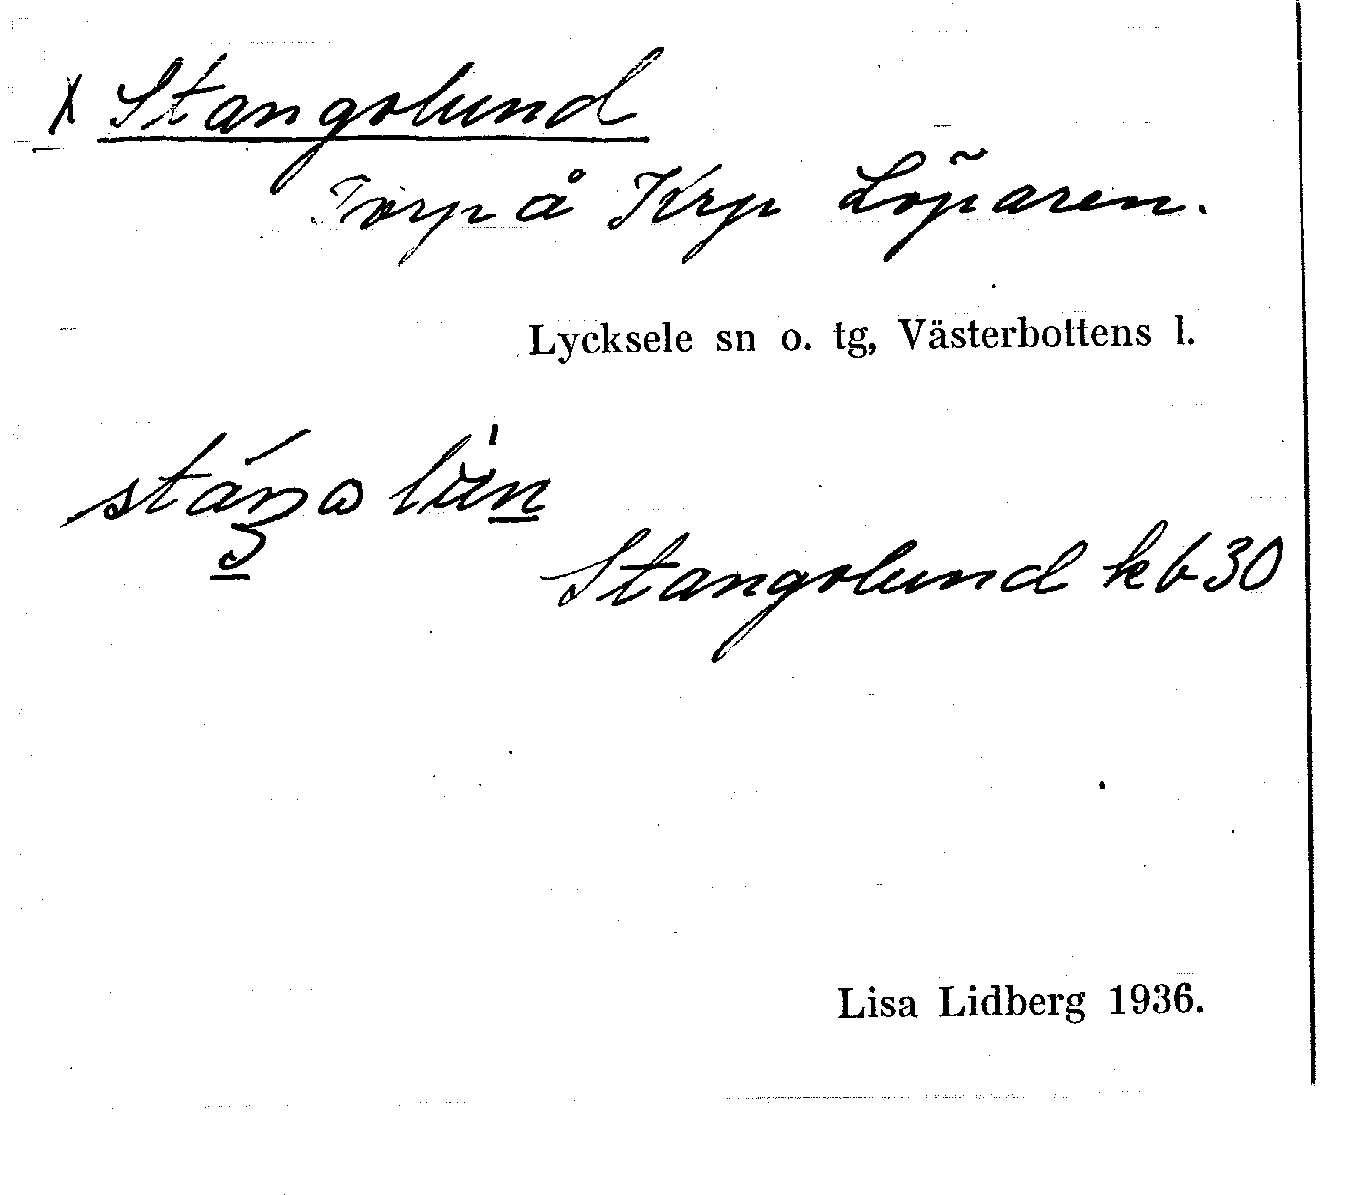 X Stangolund
Torp å Krp Löparen.
Lycksele sn o. tg, Västerbottens l.
Stangolund kb 30
Lisa Lidberg 1936.